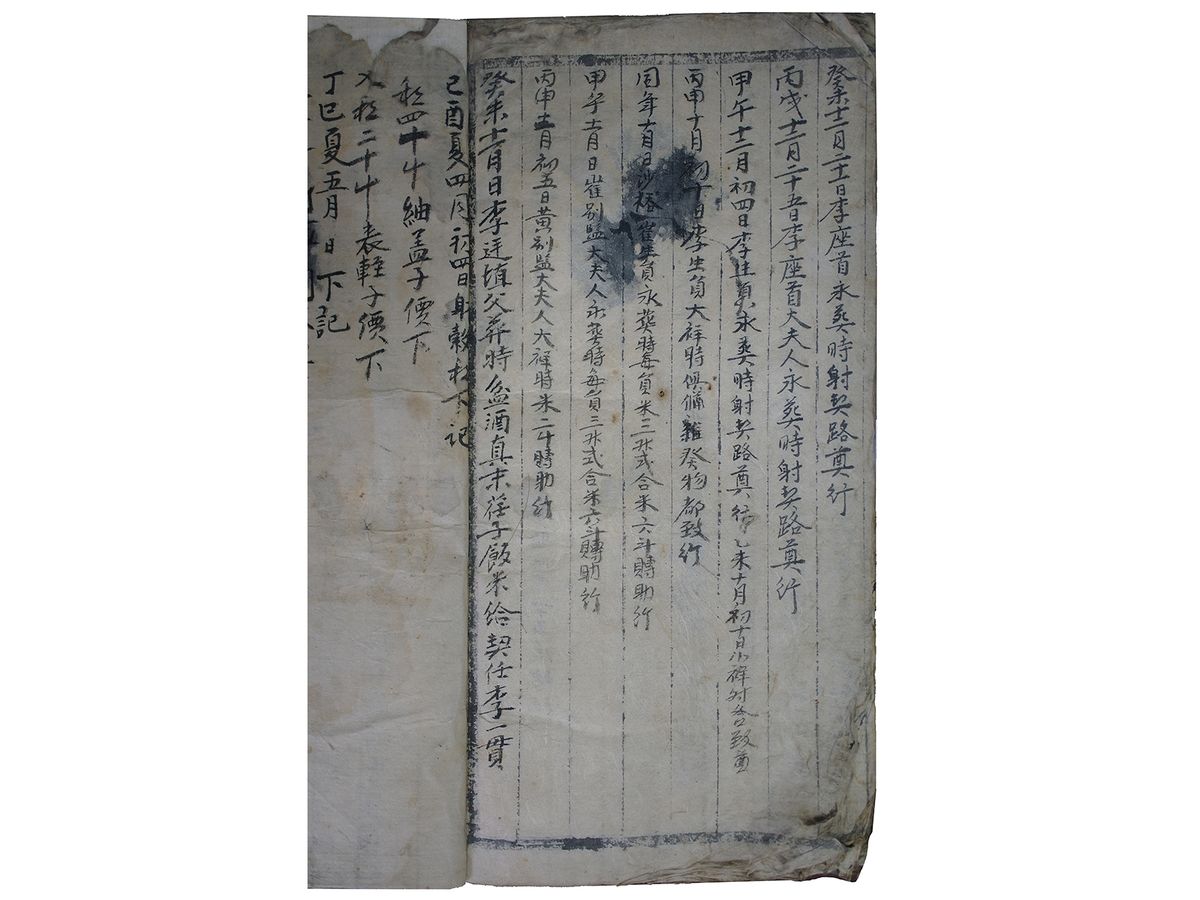 癸未十二月二十一日李座首永葬時射契路奠行
丙戌十二月二十五日李座首大夫人永葬時射契路奠行
甲午十二月初四日李生員永葬時射契路奠行乙未十月初十日小祥時各致奠
丙申十月初十日李生員大祥時俱備雜癸物都致行
同年十月日沙格崔生員永葬時每員米三升式合米六斗賻助行
甲午十二月日崔別監大夫人永葬時每員三升式合米六斗賻助行
丙申十二月初五日黃別監大夫人大祥時米二斗賻助行
癸未十二月日李廷埴父葬時盆酒真末荏子飯米給契任李一貫
己酉夏四月初四日射穀租下記
租四十斗紬盖子價下
入租二十斗表輊子價下
丁巳夏五月日下記